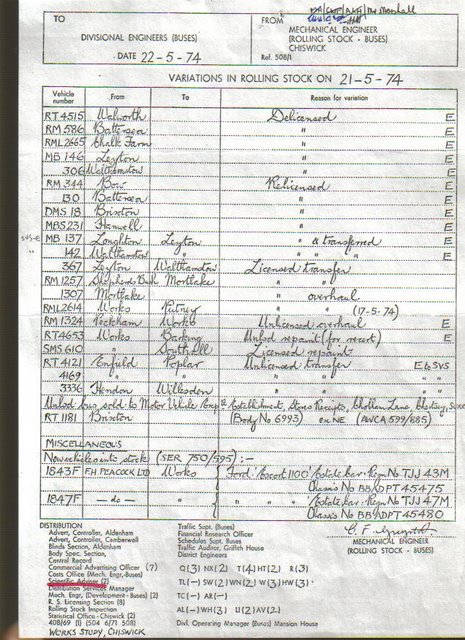 TO
DIVISIONAL ENGINEERS (BUSES)
DATE 22-5-74
FROM
MECHANICAL ENGINEER
(ROLLING STOCK - BUSES)
CHISWICK
Ref. 508/1
VARIATIONS IN ROLLING STOCK ON 21-5-74
Vehicle number From To Reason for variation
RT 4515 Walworth Delicensed E
RM 586 Battersea " E
RML 2665 Chalk Farm " E
MB 146 Leyton " E
306 Walthamstow " E
RM 344 Bow Relicensed E
130 Battersea " E
DMS 18 Brixton " E
MBS 231 Hanwell " E
SVS-E MB 137 Loughton Leyton " & transferred E
" 142 Walthamstow " " " " E
367 Leyton Walthamstow Licensed transfer
RM 1257 Shepherds Bush Mortlake " "
1307 Mortlake " overhaul
RML 2614 Works Putney " " (17-5-74)
RM 1324 Peckham Works Unlicensed overhaul E
RT 4653 Works Barking Unlsd repaint (for recert) E
SMS 610 " Southall Licensed repaint
RT 4121 Enfield Poplar Unlicensed transfer E to SVS
4169 " " " " " "
3336 Hendon Willesden " " " "
Unlsd bus sold to Motor Vehicle Establishment, Stores Receipts, Lane, Chertsey,
RT 1181 Brixton (Body No 6993) ex NE (AWCA 599/685)
MISCELLANEOUS
New vehicles into stock (SER 750/595):-
1843F F.H. PEACOCK LTD Works Ford 'Escort 1100' Estate car - Regn No TJJ 43M
Chassis No BB ADPT 45475
1847F - do - " " Estate car - Regn No TJJ 47M
Chassis No BB ADPT 45480
DISTRIBUTION
Advert, Controller, Aldenham
Advert, Controller, Camberwell
Blinds Section, Aldenham
Body Spec. Section,
Central Record
Commercial Advertising Officer (7)
Costs Office (Mech. Engr.-Buses)
Scientific Adviser (2)
Distribution Services Manager
Mech. Engr. (Development - Buses) (2)
R. S. Licensing Section (8)
Rolling Stock Inspection
Statistical Office - Chiswick (2)
408/69 (1) (504 6/71 508)
WORKS STUDY, CHISWICK
Traffic Supt. (Buses)
Financial Research Officer
Schedules Supt. Buses
Traffic Auditor, Griffith House
District Engineers
Q(3) NX(2) T(4) HT(2) R(3)
TL(-) SW(2) WN(2) W(3) HW(3)
TC(-) AR(-)
AL(-) WH(3) U(2) AV(2)
Divl. Operating Manager (Buses) Mansion House
MECHANICAL ENGINEER
(ROLLING STOCK - BUSES)